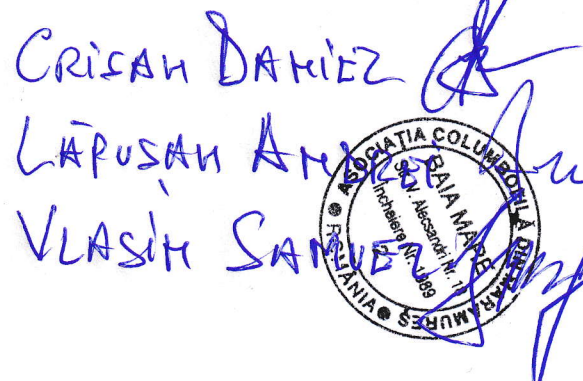 CRIȘAN DANIEL
LĂPUȘAN ANDREI
VLASIN SAMUEL
ASOCIAȚIA COLUMBOFILĂ DIN MARAMUREȘ
ROMÂNIA
BAIA MARE
Str. V. Alecsandri Nr.
Incheiere Nr.